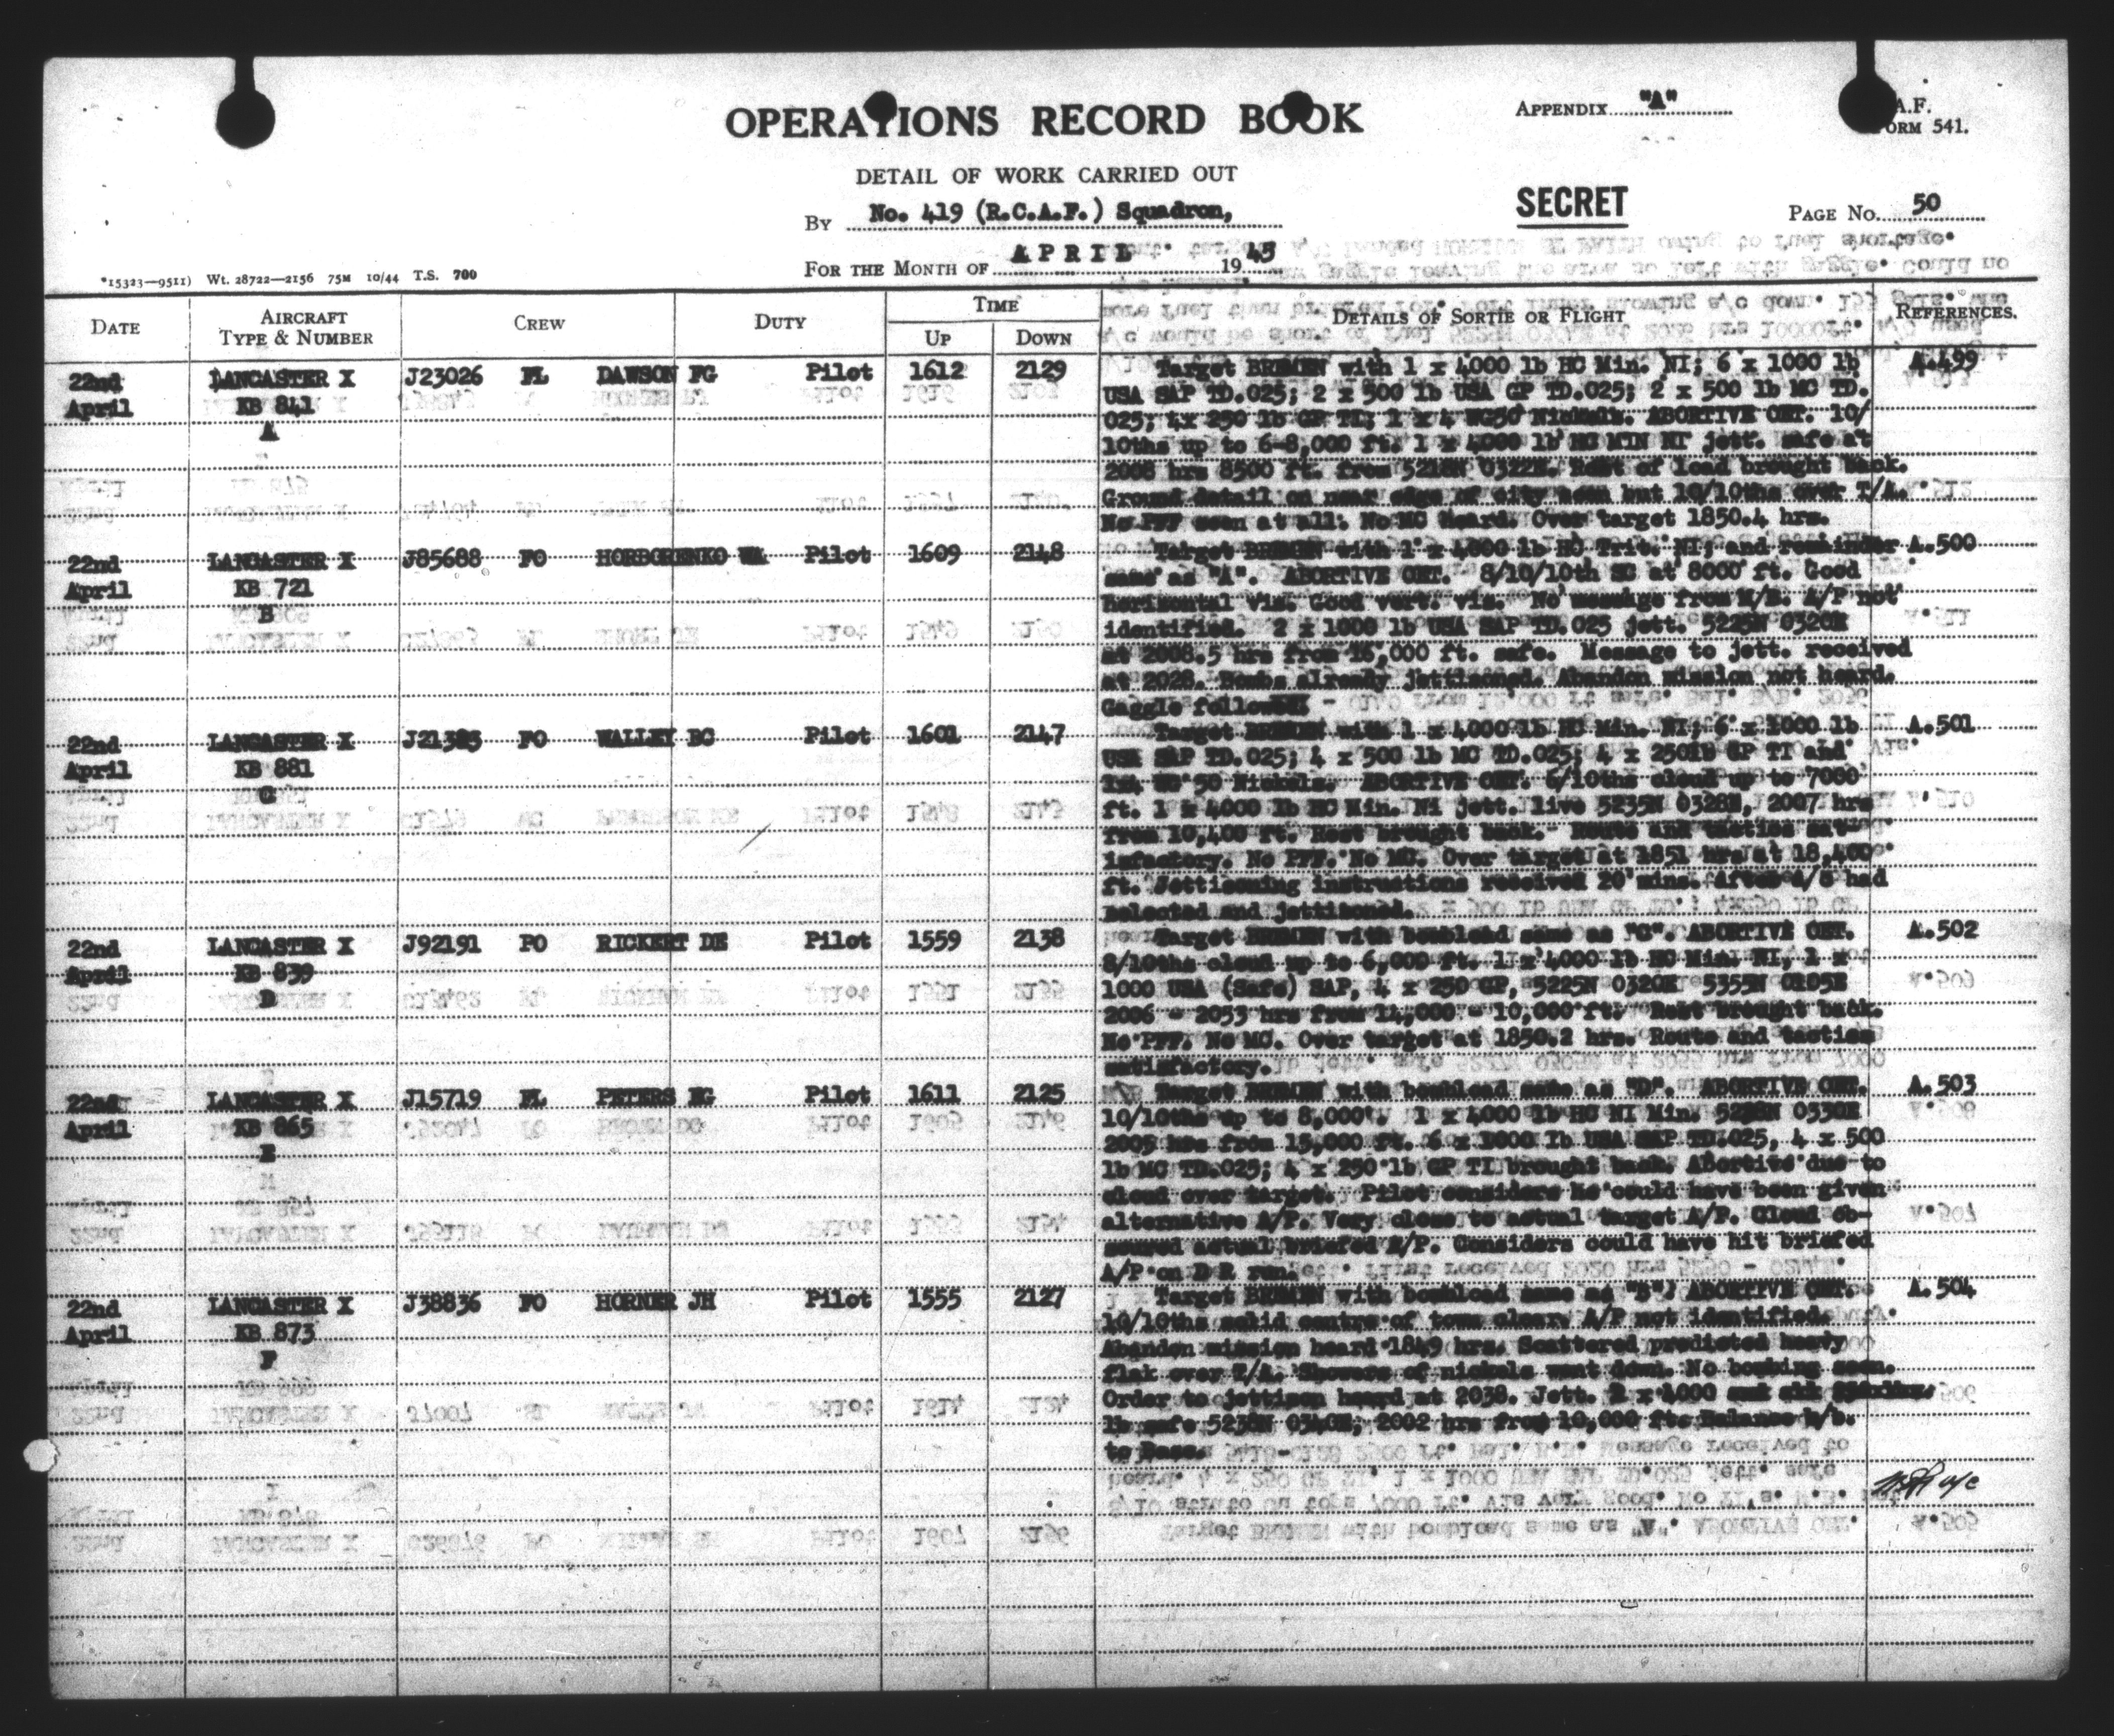 OPERATIONS RECORD BOOK
APPENDIX "A"
A.F.
FORM 541.
DETAIL OF WORK CARRIED OUT
SECRET
By No. 419 (R.C.A.F.) Squadron,
PAGE No. 50
FOR THE MONTH OF APRIL 1945
*15323—9511) Wt. 28722—2156 75M 10/44 T.S. 700
DATE AIRCRAFT TYPE & NUMBER CREW DUTY TIME UP DOWN DETAILS OF SORTIE OR FLIGHT REFERENCES.
22nd April LANCASTER X KB 841 A J23026 FL DAWSON FG Pilot 1612 2129 A.499
Target BREMEN with 1 x 4000 lb HC Min. NI; 6 x 1000 lb
USA SAP TD.025; 2 x 500 lb USA GP TD.025; 2 x 500 lb MC TD.
025; 4x 250 lb GP TI; 1 x 4 WG50 Nickels. ABORTIVE OET. 10/
10ths up to 6-8,000 ft. 1 x 4000 lb HC MIN NI jett. safe at
2008 hrs 8500 ft. from 5218N 0322E. Rest of load brought back.
Ground detail on near edge of city seen but 10/10ths over T/A.
No PFF seen at all. No MC Heard. Over target 1850.4 hrs.
22nd April LANCASTER X KB 721 B J85688 FO HORBORENKO WA Pilot 1609 2148 A.500
Target BREMEN with 1 x 4000 lb HC Trit. NI; and remainder
same as "A". ABORTIVE OET. 8/10/10th SC at 8000 ft. Good
horizontal vis. Good vert. vis. No message from M/B. A/P not
identified. 2 x 1000 lb USA SAP TD.025 jett. 5225N 0320E
at 2008.5 hrs from 16,000 ft. safe. Message to jett. received
at 2028. Bombs already jettisoned. Abandon mission not heard.
Gaggle followed
22nd April LANCASTER X KB 881 C J21383 FO WALLEY BC Pilot 1601 2147 A.501
Target BREMEN with 1 x 4000 lb HC Min. NI; 6 x 1000 lb
USA SAP TD.025; 4 x 500 lb MC TD.025; 4 x 250lb GP TI and
1x4 WG 50 Nickels. ABORTIVE OET. 6/10ths cloud up to 7000
ft. 1 x 4000 lb HC Min. Ni jett. live 5235N 0328E, 2007 hrs
from 10,400 ft. Rest brought back. Route and tactics sat-
isfactory. No PFF. No MC. Over target at 1851 hrs at 18,400
ft. Jettisoning instructions received 20 mins. after A/B had
selected and jettisoned.
22nd April LANCASTER X KB 839 D J92191 PO RICKERT DE Pilot 1559 2138 A.502
Target BREMEN with bombload same as "C". ABORTIVE OET.
8/10ths cloud up to 6,000 ft. 1 x 4000 lb HC Min. NI, 1 x
1000 USA (Safe) SAP, 4 x 250 GP, 5225N 0320E 5355N 0105E
2006 - 2053 hrs from 14,000 - 10,000 ft. Rest brought back.
No PFF. No MC. Over target at 1850.2 hrs. Route and tactics
satisfactory.
22nd April LANCASTER X KB 865 E J15719 FL PETERS HG Pilot 1611 2125 A.503
Target BREMEN with bombload same as "D". ABORTIVE OET.
10/10ths up to 8,000'. 1 x 4000 lb HC NI Min. 0330E
2005 hrs from 15,000 ft. 6 x 1000 lb USA SAP TD.025, 4 x 500
lb MC TD.025; 4 x 250 lb GP TI brought back. Abortive due to
cloud over target. Pilot considers he could have been given
alternative A/P. Very close to actual target A/P. Cloud ob-
scured actual briefed A/P. Considers could have hit briefed
A/P on D R run.
22nd April LANCASTER X KB 873 F J38836 FO HORNER JH Pilot 1555 2127 A.504
Target BREMEN with bombload same as "B". ABORTIVE OET.
10/10ths solid centre of town clear. A/P not identified.
Abandon mission heard 1849 hrs. Scattered predicted heavy
flak over T/A. Showers of nickels went down. No bombing seen.
Order to jettison heard at 2038. Jett. x 4000
lb safe 5238N 0340E; 2002 hrs from 10,000 ft. Balance b/b.
to Base.